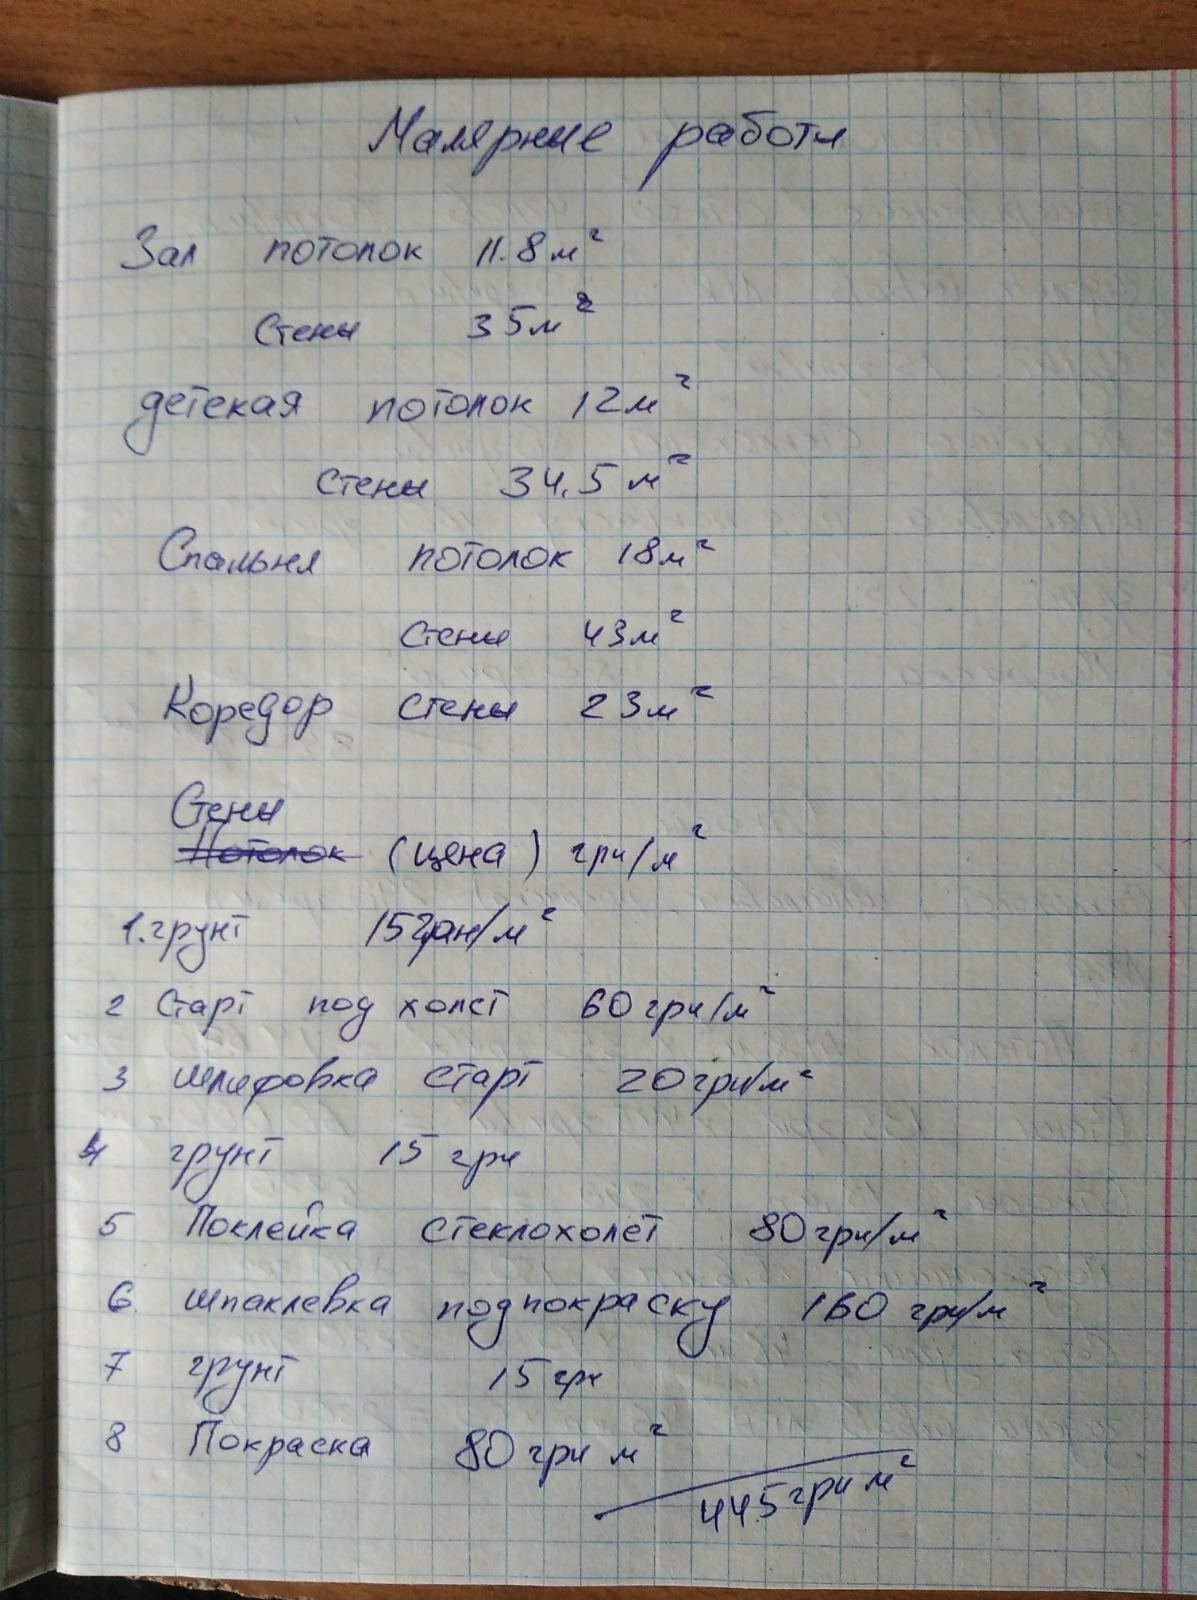 Малярные работы
Зал потолок 11.8 м²
Стены 35 м²
детская потолок 12 м²
стены 34.5 м²
Спальня потолок 18 м²
стены 43 м²
Коредор стены 23 м²
Стены
Потолок (цена) грн/м²
1. грунт 15 грн/м²
2 Старт под холст 60 грн/м²
3 шлифовка старт 20 грн/м²
4 грунт 15 грн
5 Поклейка стеклохолст 80 грн/м²
6 шпаклевка под покраску 160 грн/м²
7 грунт 15 грн
8 Покраска 80 грн м²
445 грн м²